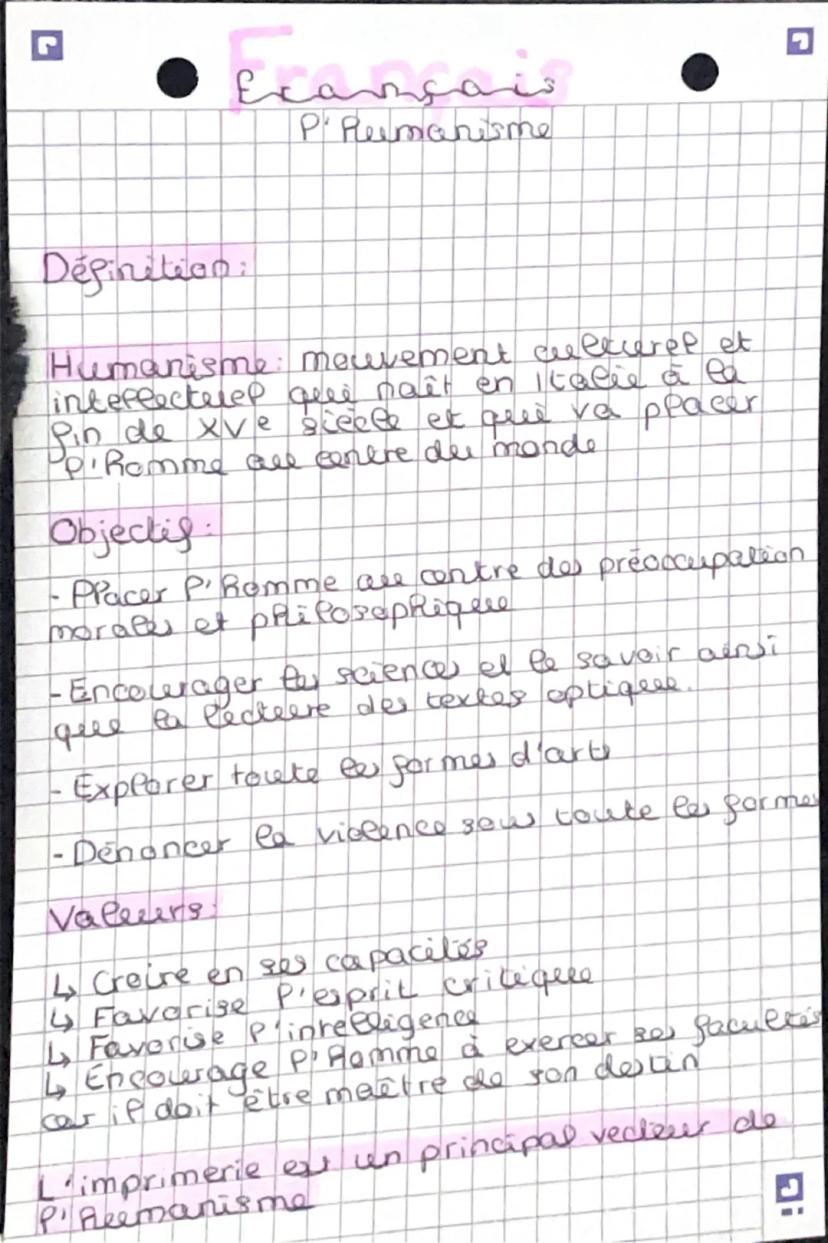 Français
l'Humanisme
Définition:
Humanisme: mouvement culturel et
intellectuel qui naît en Italie à la
fin de XVe siècle et qui va placer
l'Homme au centre du monde
Objectif:
- Placer l'Homme au centre des préoccupation
morales et philosophique
- Encourager les sciences et le savoir ainsi
que la lecture des textes optique.
- Explorer toute les formes d'arts
- Dénoncer la violence sous toute les formes
Valeurs:
↳ Croire en ses capacités
↳ Favorise l'esprit critique
↳ Favorise l'intelligence
↳ Encourage l'Homme à exercer ses facultés
car il doit être maître de son destin
L'imprimerie est un principal vecteur de
l'Humanisme